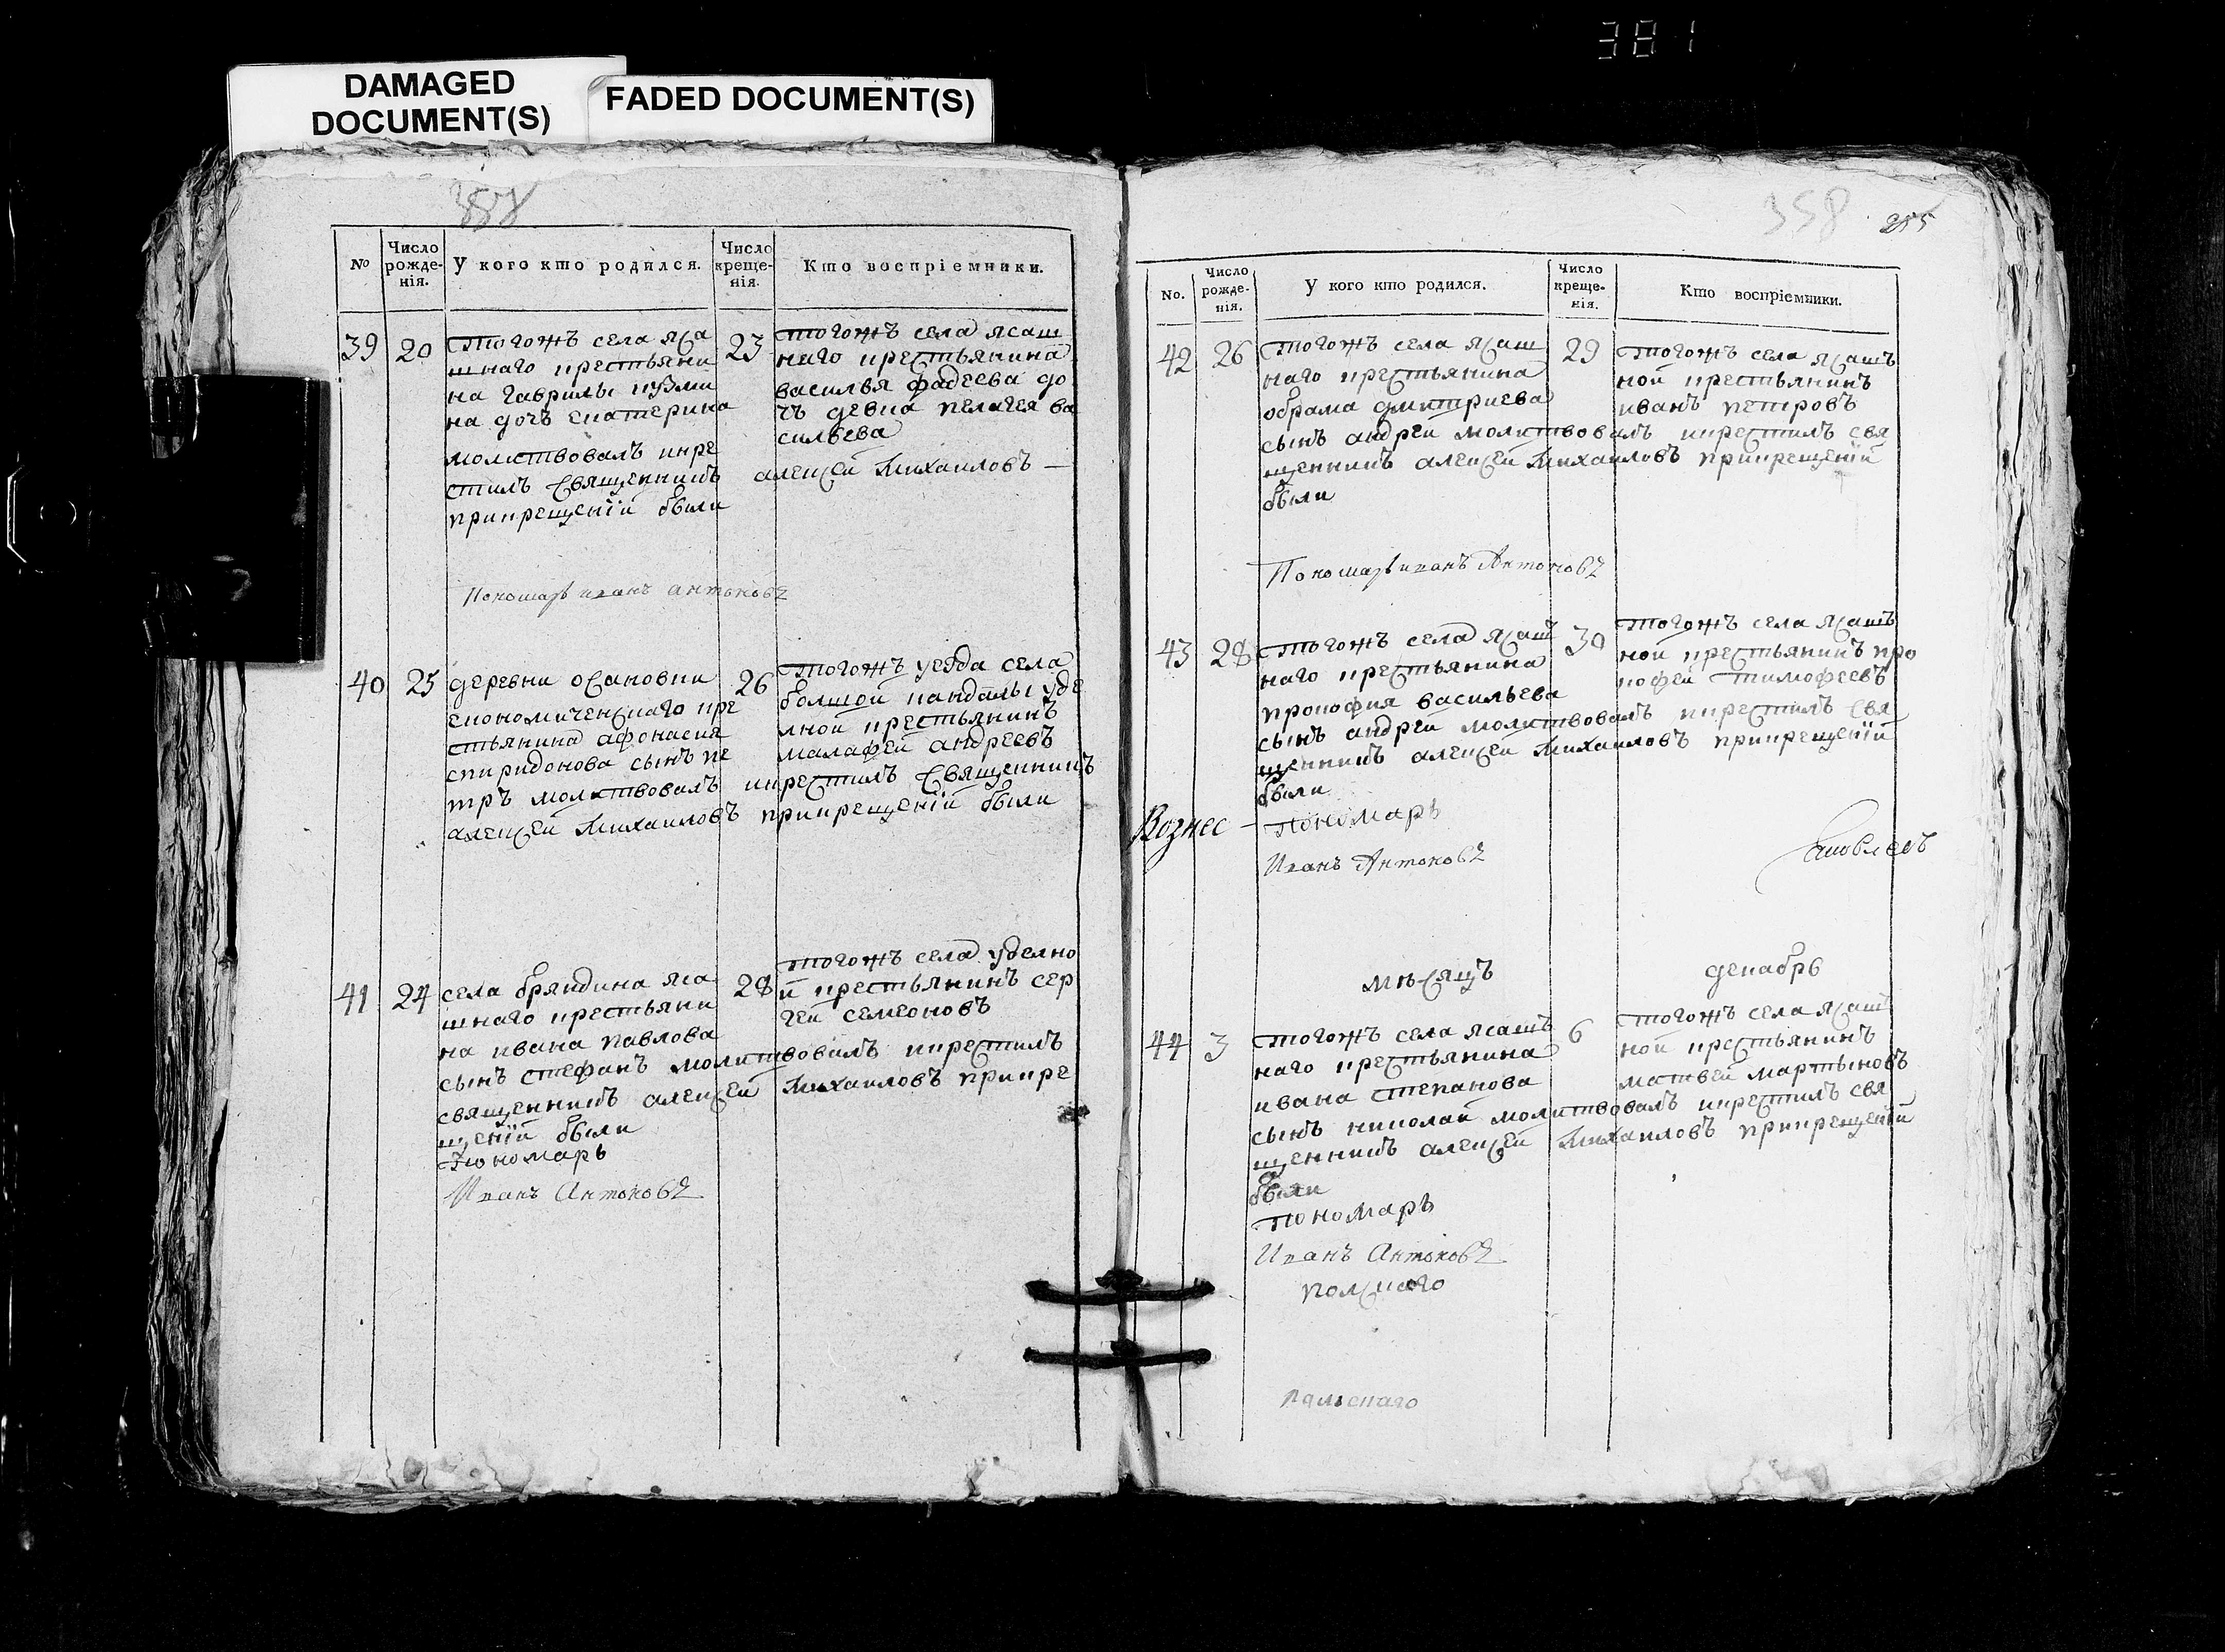 381
DAMAGED
DOCUMENT(S)
FADED DOCUMENT(S)
No
Число рожденія.
У кого кто родился.
Число крещенія.
Кто воспріемники.
39
20
Тогожъ села яса
шнаго крестьяни
на гаврилы кузми
на дочь екатерина
молитвовалъ икре
стилъ священникъ алексей михаиловъ
прикрещенїи были
23
тогожъ села ясаш
наго крестьянина
василья фадеева до
чъ девка пелагея ва
сильева
Пономарь иванъ антоновъ
40
25
деревни осановки
економическаго кре
стьянина афонасия
спиридонова сынъ пе
тръ молитвовалъ икрестилъ священникъ
алексей михаиловъ прикрещенїи были
26
тогожъ уезда села
болшой кандалы уде
лной крестьянинъ
малафей андреевъ
41
24
села бряндина яса
шнаго крестьяни
на ивана павлова
сынъ стефанъ молитвовалъ икрестилъ
священникъ алексей михаиловъ прикре
щенїи были
28
тогожъ села уделно
й крестьянинъ сер
гей семеоновъ
пономарь
Иванъ Антоновъ
358
255
No.
Число рожденія.
У кого кто родился.
Число крещенія.
Кто воспріемники.
42
26
тогожъ села ясаш
наго крестьянина
обрама дмитриева
сынъ андрей молитвовалъ икрестилъ свя
щенникъ алексей михаиловъ прикрещенїи
были
29
тогожъ села ясашъ
ной крестьянинъ
иванъ петровъ
Пономарь иванъ Антоновъ
43
28
тогожъ села ясаш
наго крестьянина
прокофия васильева
сынъ андрей молитвовалъ икрестилъ свя
щенникъ алексей михаиловъ прикрещенїи
были
30
тогожъ села ясашъ
ной крестьянинъ про
кофей тимофеевъ
Вознес-
пономарь
Иванъ Антоновъ
Яковлевъ
мѣсяцъ
декабрь
44
3
тогожъ села ясашъ
наго крестьянина
ивана степанова
сынъ николай молитвовалъ икрестилъ свя
щенникъ алексей михаиловъ прикрещенїи
были
6
тогожъ села ясаш
ной крестьянинъ
матвей мартыновъ
пономарь
Иванъ Антоновъ
полскаго